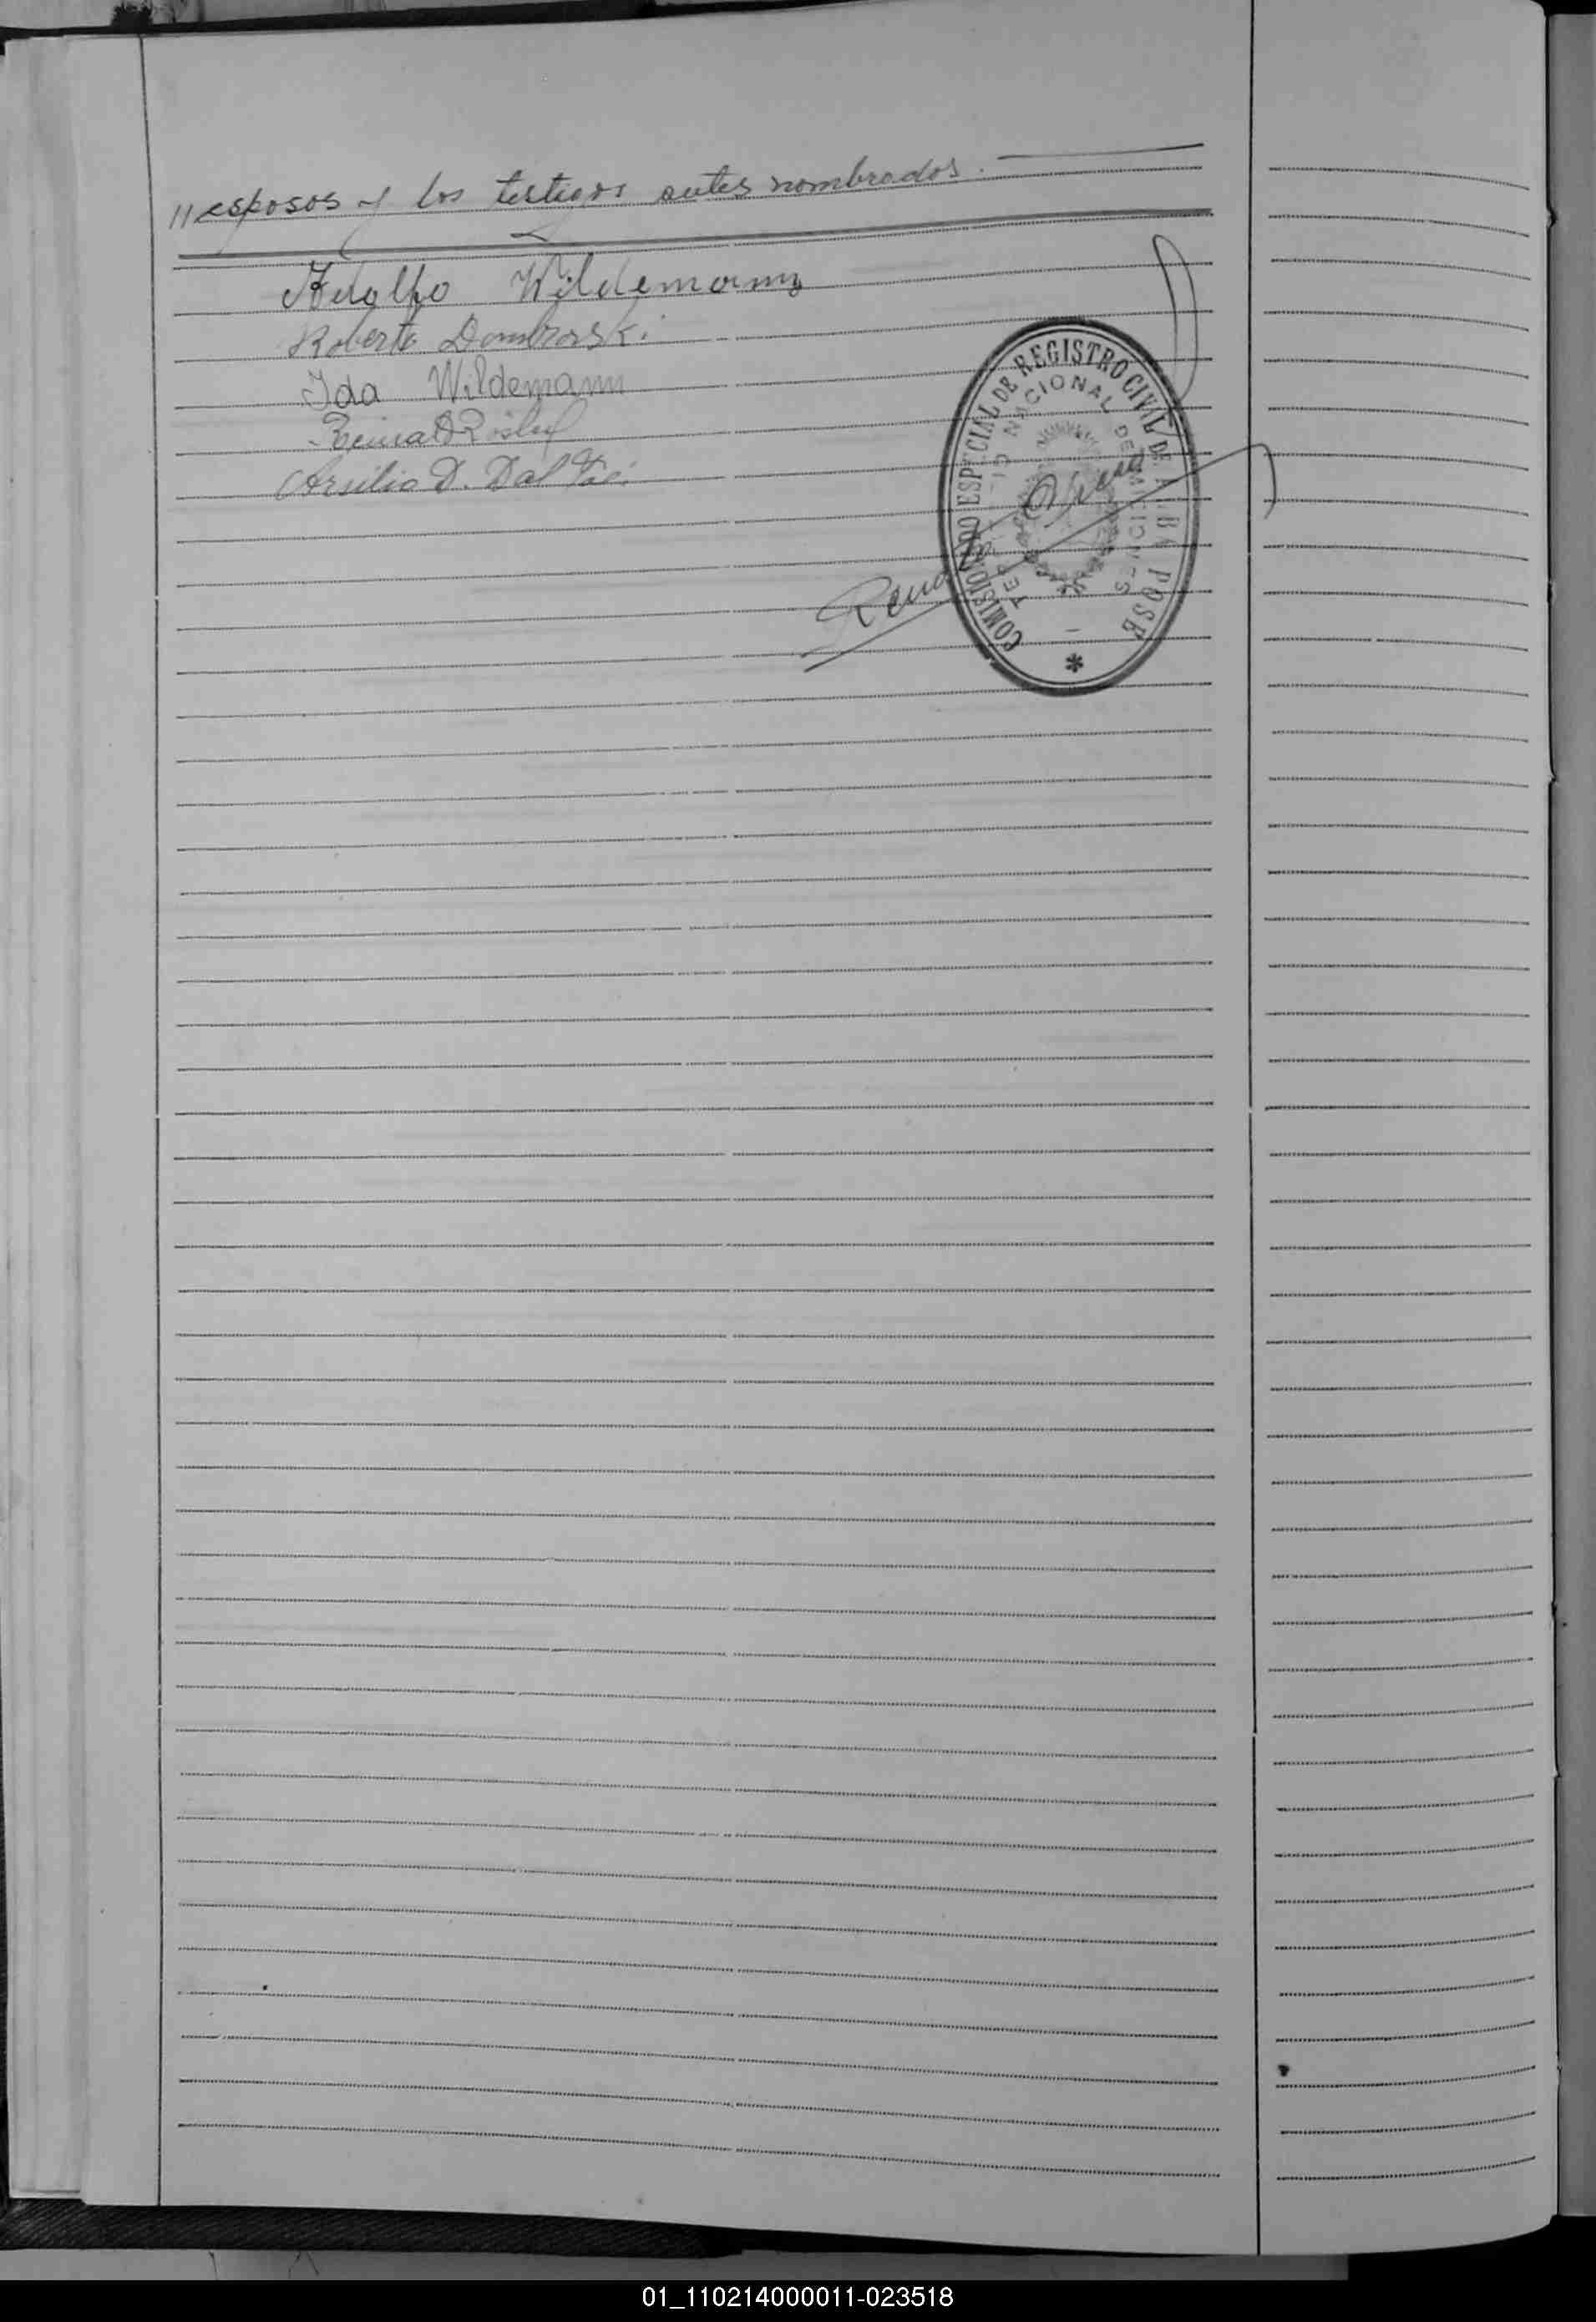 // esposos y los testigos antes nombrados.
Adolfo Wildemann
Roberto Dombroski
Ida Wildemann
Arsilio D. Dal
COMISIONADO ESPECIAL DE REGISTRO CIVIL DE ALBA POSE
NACIONAL DE MISIONES
*
01_110214000011-023518